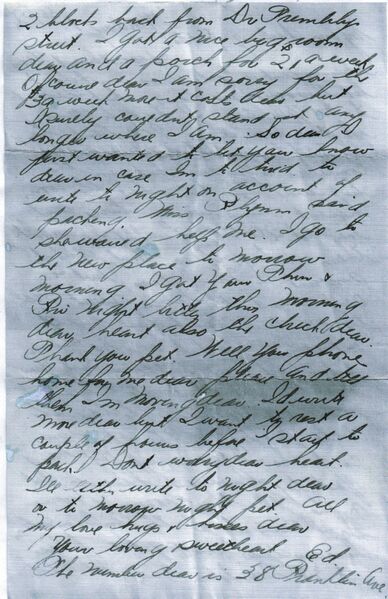 2 blocks back from Dr Trembleys
street. I got a nice big room
dear and a porch for $21 a week
Of course dear I am sorry for the
$3 a week more it costs dear but
I surely couldn't stand it any
longer where I am. So dear I
first wanted to let you know
dear in case Im to tired to
write to night on account of
packing. Miss Flynn said
she would help me. I go to
the new place to morrow
morning. I got your Thur &
Fri night letter this morning
dear heart also the check dear.
Thank you pet. Will you phone
home for me dear please and tell
them Im moving dear. Id write
more dear but I want to rest a
couple of hours before I start to
pack. Dont worry dear heart.
Ill write to night dear
or to morrow night pet. All
my love hugs & kisses dear
Your loving sweetheart Ed
The number dear is 38 Franklin Ave.